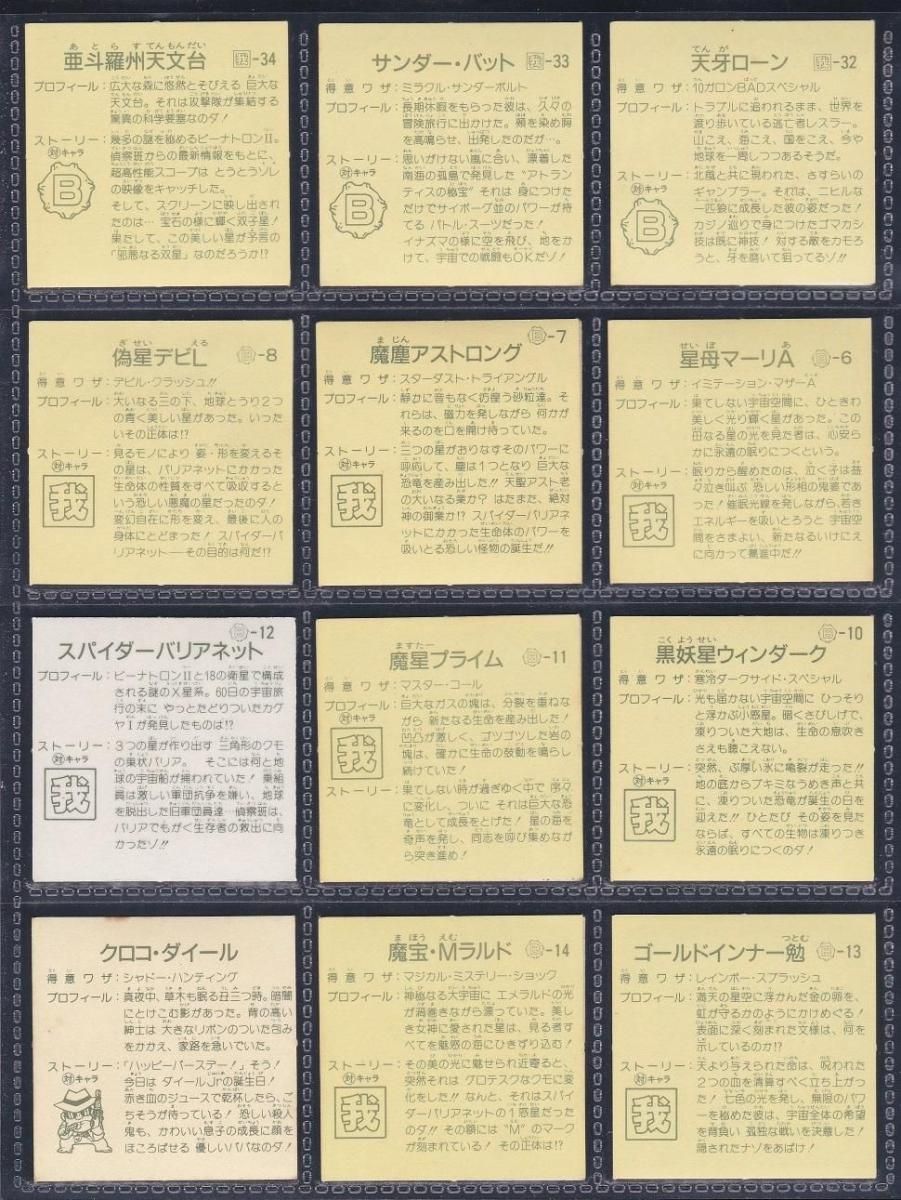 あとらす てんもんだい
亜斗羅州天文台 我-34
プロフィール：広大な森に悠然とそびえる 巨大な
天文台。それは攻撃隊が集結する
驚異の科学要塞なのダ！
ストーリー：幾多の謎を秘めるビーナトロンII。
対キャラ 偵察班からの最新情報をもとに、
超高性能スコープは とうとうソレ
の映像をキャッチした。
B
そして、スクリーンに映し出され
たのは… 宝石の様に輝く双子星！
果だして、この美しい星が予言の
「邪悪なる双星」なのだろうか!?
サンダー・バット 我-33
得意ワザ：ミラクル・サンダーボルト
プロフィール：長期休暇をもらった彼は、久々の
冒険旅行に出かけた。頬を染め胸
を高鳴らせ、出発したのだが…
ストーリー：思いがけない嵐に合い、漂着した
対キャラ 南海の孤島で発見した “アトラン
ティスの秘宝” それは 身につけた
B
だけでサイボーグ並のパワーが持
てる バトル・スーツだった！
イナズマの様に空を飛び、地をか
けて、宇宙での戦闘もOKだゾ！
てんが
天牙ローン 我-32
得意ワザ：10ガロンBADスペシャル
プロフィール：トラブルに追われるまま、世界を
渡り歩いている逃亡者レスラー。
山こえ、海こえ、国をこえ、今や
地球を一周しつつあるそうだ。
ストーリー：北風と共に現われた、さすらいの
対キャラ ギャンブラー。それは、ニヒルな
一匹狼に成長した彼の姿だった！
B
カジノ巡りで身につけたゴマカシ
技は既に神技！ 対する敵をカモろ
うと、牙を磨いて狙ってるゾ!!
ぎせい える
偽星デビL -8
得意ワザ：デビル・クラッシュ!!
プロフィール：大いなる三の下、地球とうり２つ
の青く美しい星があった。いった
いその正体は!?
ストーリー：見るモノにより 姿・形を変えるそ
対キャラ の星は、バリアネットにかかった
生命体の性質をすべて吸収すると
我
いう恐しい悪魔の星だったのダ！
変幻自在に形を変え、最後に人の
身体にとどまった！ スパイダーバ
リアネット──その目的は何だ!?
まじん
魔塵アストロング -7
得意ワザ：スターダスト・トライアングル
プロフィール：静かに音もなく彷徨う砂粒達。そ
れらは、磁力を発しながら 何かが
来るのを口を開け待っていた。
ストーリー：三つの星がおりなすそのパワーに
対キャラ 呼応して、塵は１つとなり 巨大な
恐竜を産み出した!! 天聖アスト老
我
の大いなる業か？ はたまた、絶対
神の御業か!? スパイダーバリアネ
ットにかかった生命体のパワーを
吸いとる恐しい怪物の誕生だ!!
せいぼ あ
星母マーリA -6
得意ワザ：イミテーション・マザーA
プロフィール：果てしない宇宙空間に、ひときわ
美しく光り輝く星があった。この
母なる星の光を見た者は、心安ら
かに永遠の眠りにつくという。
ストーリー：眠りから醒めたのは、泣く子は益
対キャラ 々泣き叫ぶ 恐しい形相の鬼姿であ
った！ 催眠光線を発しながら、若き
我
エネルギーを吸いとろうと 宇宙空
間をさまよい、新たなるいけにえ
に向かって驀進中だ!!
スパイダーバリアネット -12
プロフィール：ビーナトロンIIと18の衛星で構成
される謎のX星系。60日の宇宙旅
行の末に やっとたどりついたカグ
ヤIが発見したものは!?
ストーリー：３つの星が作り出す 三角形のクモ
対キャラ の巣状バリア。 そこには何と地
球の宇宙船が捕われていた！ 乗組
我
員は激しい軍団抗争を嫌い、地球
を脱出した旧軍団員達… 偵察班は、
バリアでもがく生存者の救出に向
かったゾ!!
ますたー
魔星プライム -11
得意ワザ：マスター・コール
プロフィール：巨大なガスの塊は、分裂を重ねな
対キャラ がら 新たなる生命を産み出した！
凹凸が激しく、ゴツゴツした岩の
我
塊は、確かに生命の鼓動を鳴らし
続けていた！
ストーリー：果てしない時が過ぎゆく中で 序々
に変化し、ついに それは巨大な恐
竜として成長をとげた！ 星の海を
奇声を発し、同志を呼び集めなが
ら突き進め！
こくようせい
黒妖星ウィンダーク -10
得意ワザ：寒冷ダークサイド・スペシャル
プロフィール：光も届かない宇宙空間に ひっそり
と浮かぶ小惑星。暗くさびしげで、
凍りついた大地は、生命の息吹き
さえも聴こえない。
ストーリー：突然、ぶ厚い氷に亀裂が走った!!
対キャラ 地の底からブキミなうめき声と共
に、凍りついた恐竜が誕生の日を
我
迎えた!! ひとたび その姿を見た
ならば、すべての生物は凍りつき
永遠の眠りにつくのダ！
クロコ・ダイール
得意ワザ：シャドー・ハンティング
プロフィール：真夜中、草木も眠る丑三つ時。暗闇
にとけこむ影があった。背の高い
紳士は 大きなリボンのついた包み
をかかえ、家路を急いでいた。
ストーリー：「ハッピーバースデー！」そう！
対キャラ 今日は ダイールJrの誕生日！
赤き血のジュースで乾杯したら、ご
ちそうが待っている！ 恐しい殺人
鬼も、かわいい息子の成長に顔を
ほころばせる 優しいパパなのダ！
まほう えむ
魔宝・Mラルド -14
得意ワザ：マジカル・ミステリー・ショック
プロフィール：神秘なる大宇宙に エメラルドの光
が渦巻きながら漂っていた。美し
き女神に愛された星は、見る者す
べてを魅惑の海にひきずり込む！
ストーリー：その美の光に魅せられ近寄ると、
対キャラ 突然それは グロテスクなクモに変
化をした!! なんと、それはスパイ
我
ダーバリアネットの１惑星だった
のダ!! その額には “M” のマーク
が刻まれている！ その正体は!?
つとむ
ゴールドインナー勉 -13
得意ワザ：レインボー・スプラッシュ
プロフィール：満天の星空に浮かんだ金の卵を、
虹が守るかのようにかけめぐる！
表面に深く刻まれた文様は、何を
示しているのか!?
ストーリー：天より与えられた命は、呪われた
対キャラ ２つの血を清算すべく立ち上がっ
た！ 七色の光を発し、無限のパワ
我
ーを秘めた彼は、宇宙全体の希望
を背負い 孤独な戦いを決意した！
隠されたナゾをあばけ！